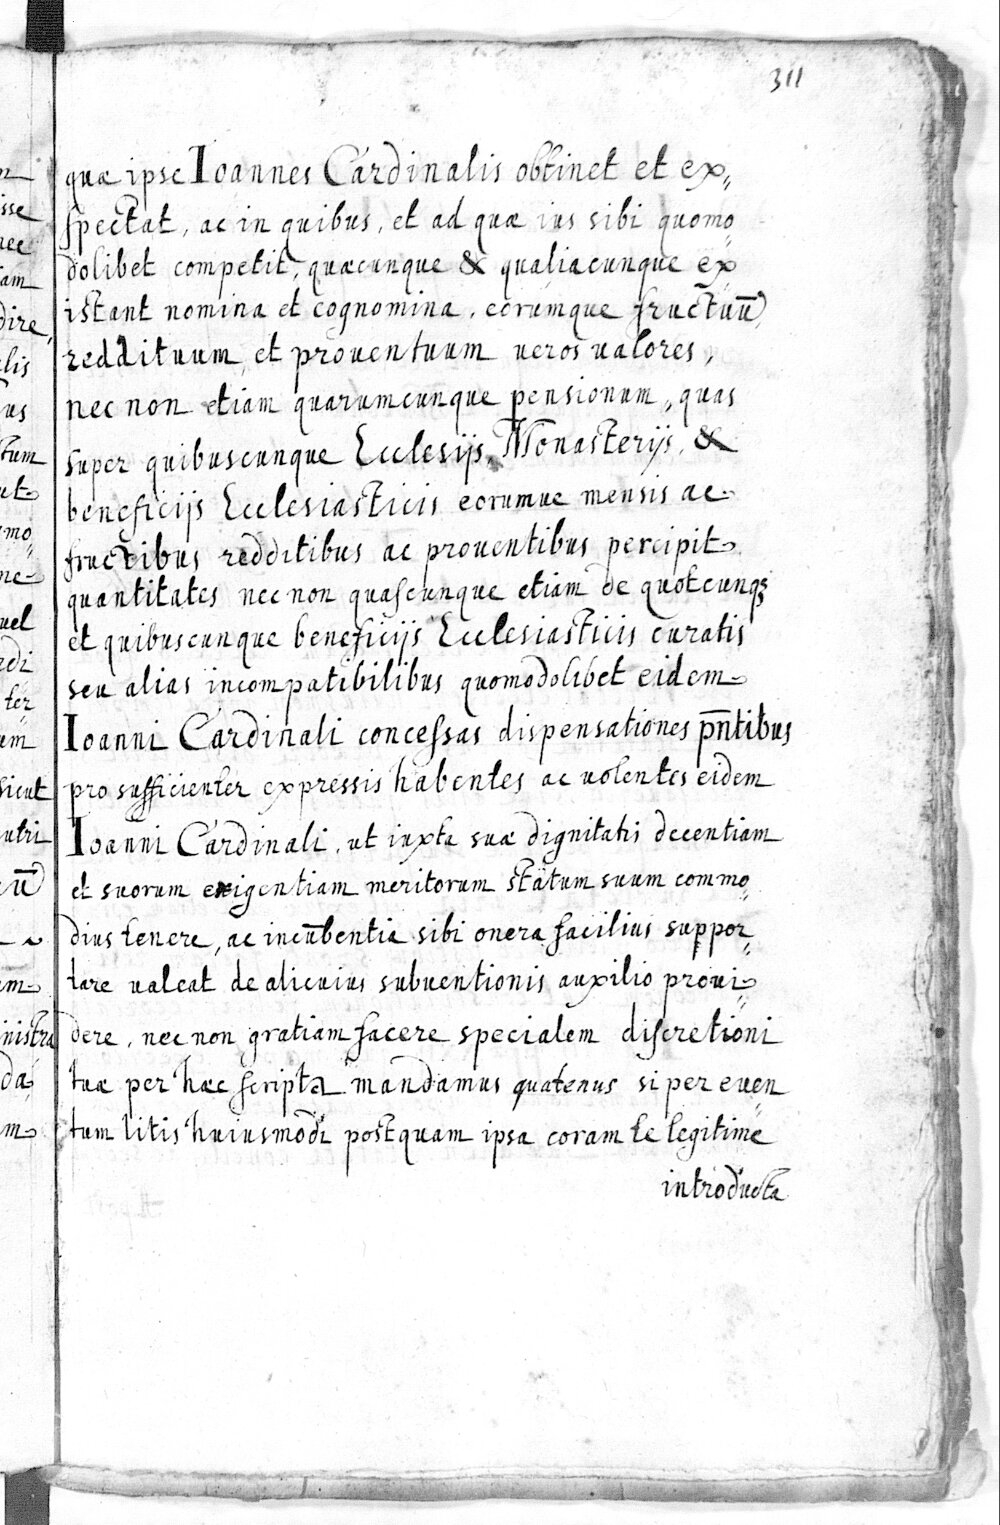 311
quæ ipse Ioannes Cardinalis obtinet et ex„
spectat, ac in quibus, et ad quæ ius sibi quomo„
dolibet competit, quæcunque & qualiacunque ex„
istant nomina et cognomina, eorumque fructuū
reddituum et prouentuum ueros ualores,
nec non etiam quarumcunque pensionum, quas
super quibuscunque Ecclesijs, Monasterijs, &
beneficijs Ecclesiasticis eorumue mensis ac
fructibus redditibus ac prouentibus percipit
quantitates nec non quascunque etiam de quotcunqȝ
et quibuscunque beneficijs Ecclesiasticis curatis
seu alias incompatibilibus quomodolibet eidem
Ioanni Cardinali concessas dispensationes pn̄tibus
pro sufficienter expressis habentes ac uolentes eidem
Ioanni Cardinali, ut iuxta suæ dignitatis decentiam
et suorum exigentiam meritorum statum suum commo„
dius tenere, ac incūbentia sibi onera facilius suppor„
tare ualeat de alicuius subuentionis auxilio proui„
dere, nec non gratiam facere specialem discretioni
tuæ per hæc scripta mandamus quatenus si per euen„
tum litis huiusmodi postquam ipsa coram te legitime
introducta
isse
nec
iam
dire,
alis
us
tum
ut
mo„
ne
uel
rdi
ter„
um
sicut
utri
ū
um
inistra
da„
m